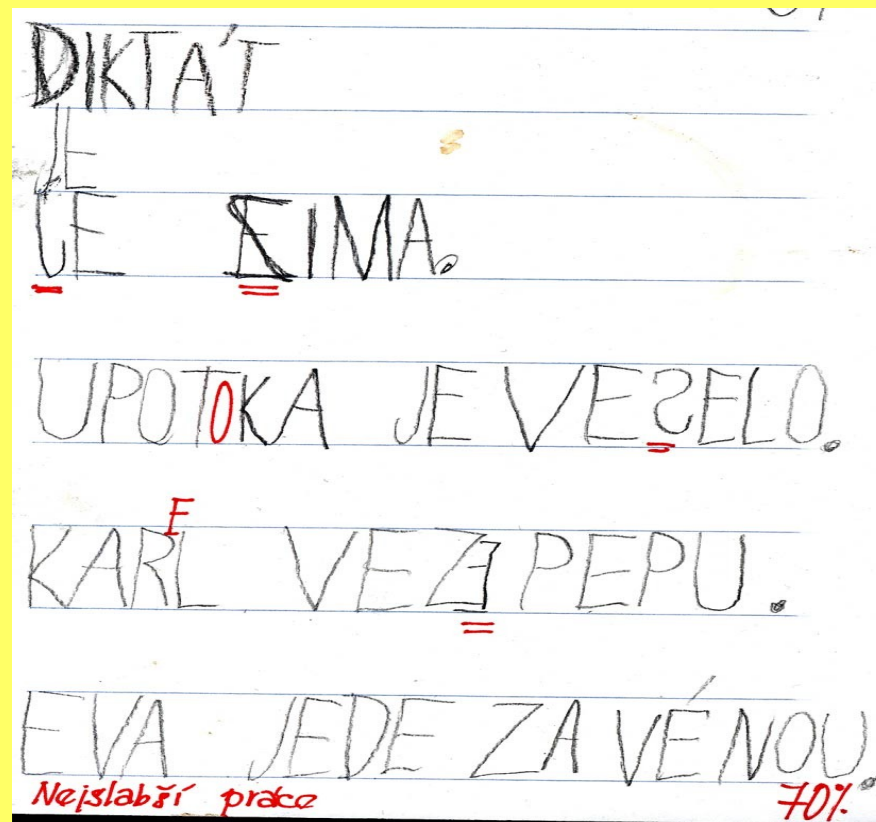 DIKTÁT
JE
JE ZIMA.
UPOTOKA JE VESELO.
F
KARL VEZE PEPU.
EVA JEDE ZA VÉNOU.
Nejslabší práce 70%